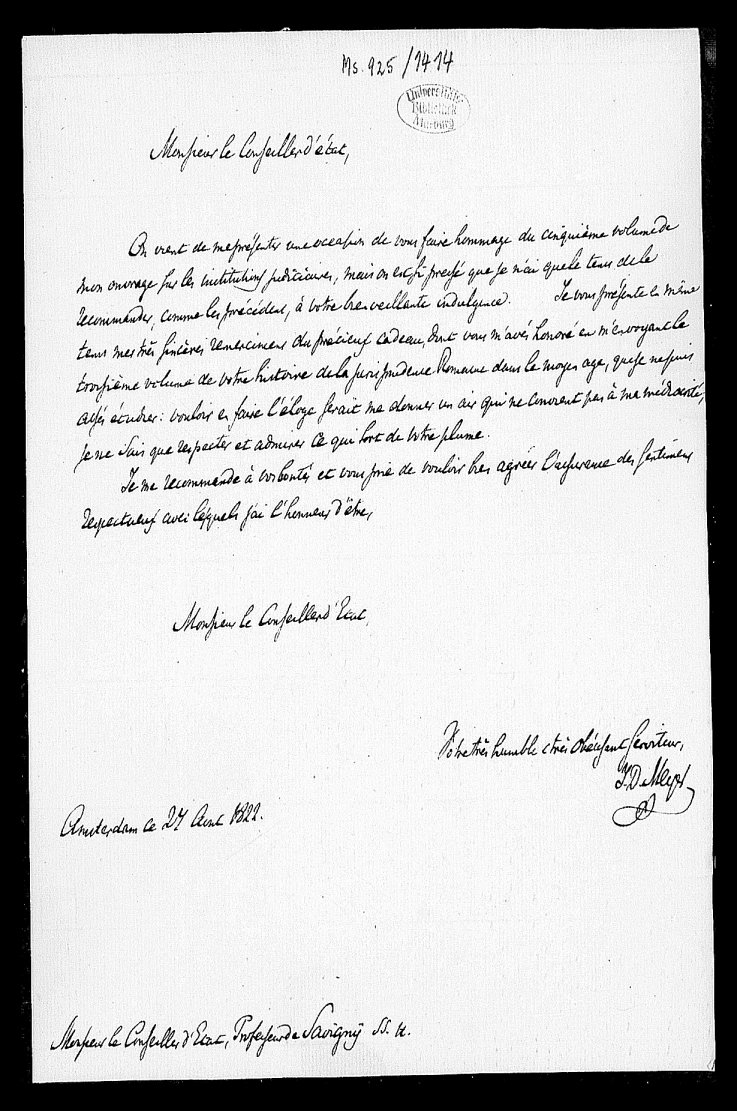 Ms. 925/1414
Universitäts
Bibliothek
Marburg
Monsieur le Conseiller d'état,
On vient de me présenter une occasion de vous faire hommage du cinquième volume de
mon ouvrage sur les institutions judiciaires, mais on est si pressé que je n'ai que le tems de le
recommander, comme les précédens, à votre bienveillante indulgence. Je vous présente en même
tems mes très sincères remercimens du précieux cadeau, dont vous m'avés honoré en m'envoyant le
troisième volume de votre histoire de la jurisprudence Romaine dans le moyen age, que je ne puis
assés étudier: vouloir en faire l'éloge serait me donner un air qui ne convient pas à ma médiocrité;
je ne sais que respecter et admirer ce qui sort de votre plume.
Je me recommande à vos bontés et vous prie de vouloir bien agréer l'assurance des sentimens
respectueux avec lesquels j'ai l'honneur d'être,
Monsieur le Conseiller d'Etat,
Vôtre très humble & très obéissant serviteur,
J. D. Meyer
Amsterdam ce 27 Aout 1822.
Monsieur le Conseiller d'Etat, Professeur de Savigny